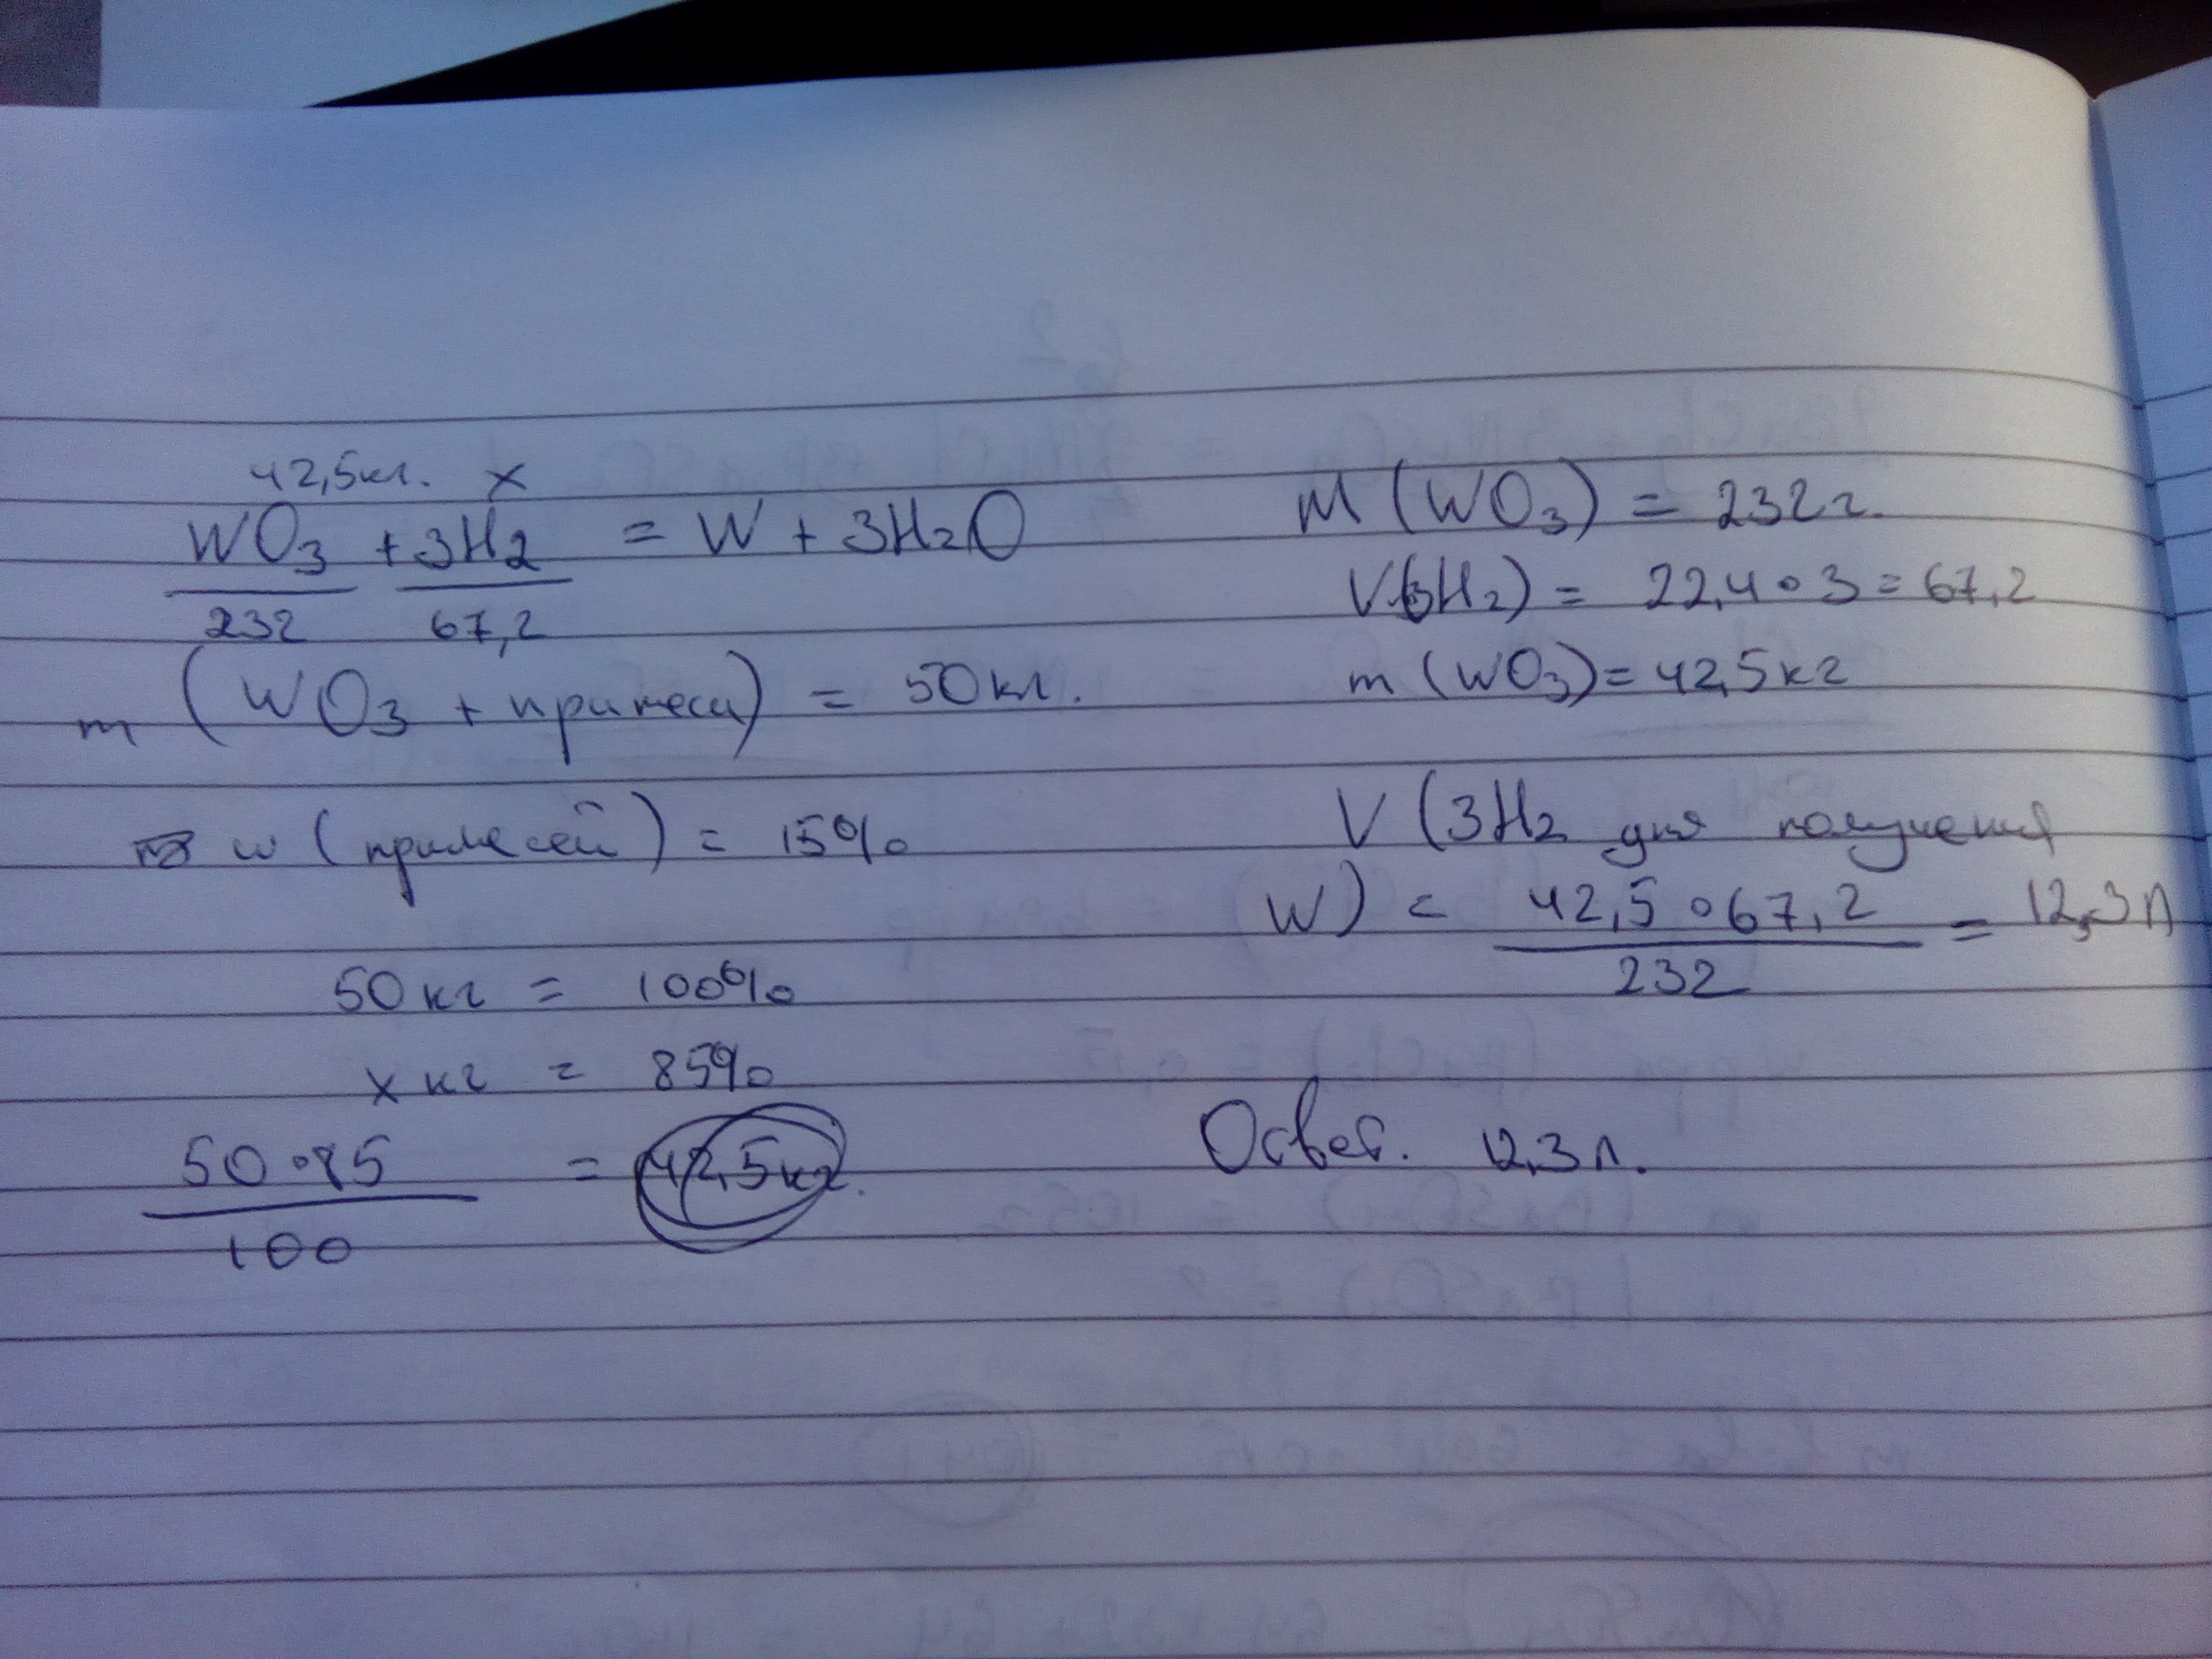 42,5кг. x
WO3 + 3H2 = W + 3H2O
232 67,2
m (WO3 + примеси) = 50кг.
w (примесей) = 15%
50кг = 100%
x кг = 85%
50∘85
100
= 42,5кг.
M (WO3) = 232г.
V(3H2) = 22,4∘3 = 67,2
m (WO3) = 42,5кг
V (3H2 для получения
W) = 42,5∘67,2 = 12,3л
232
Ответ. 12,3л.